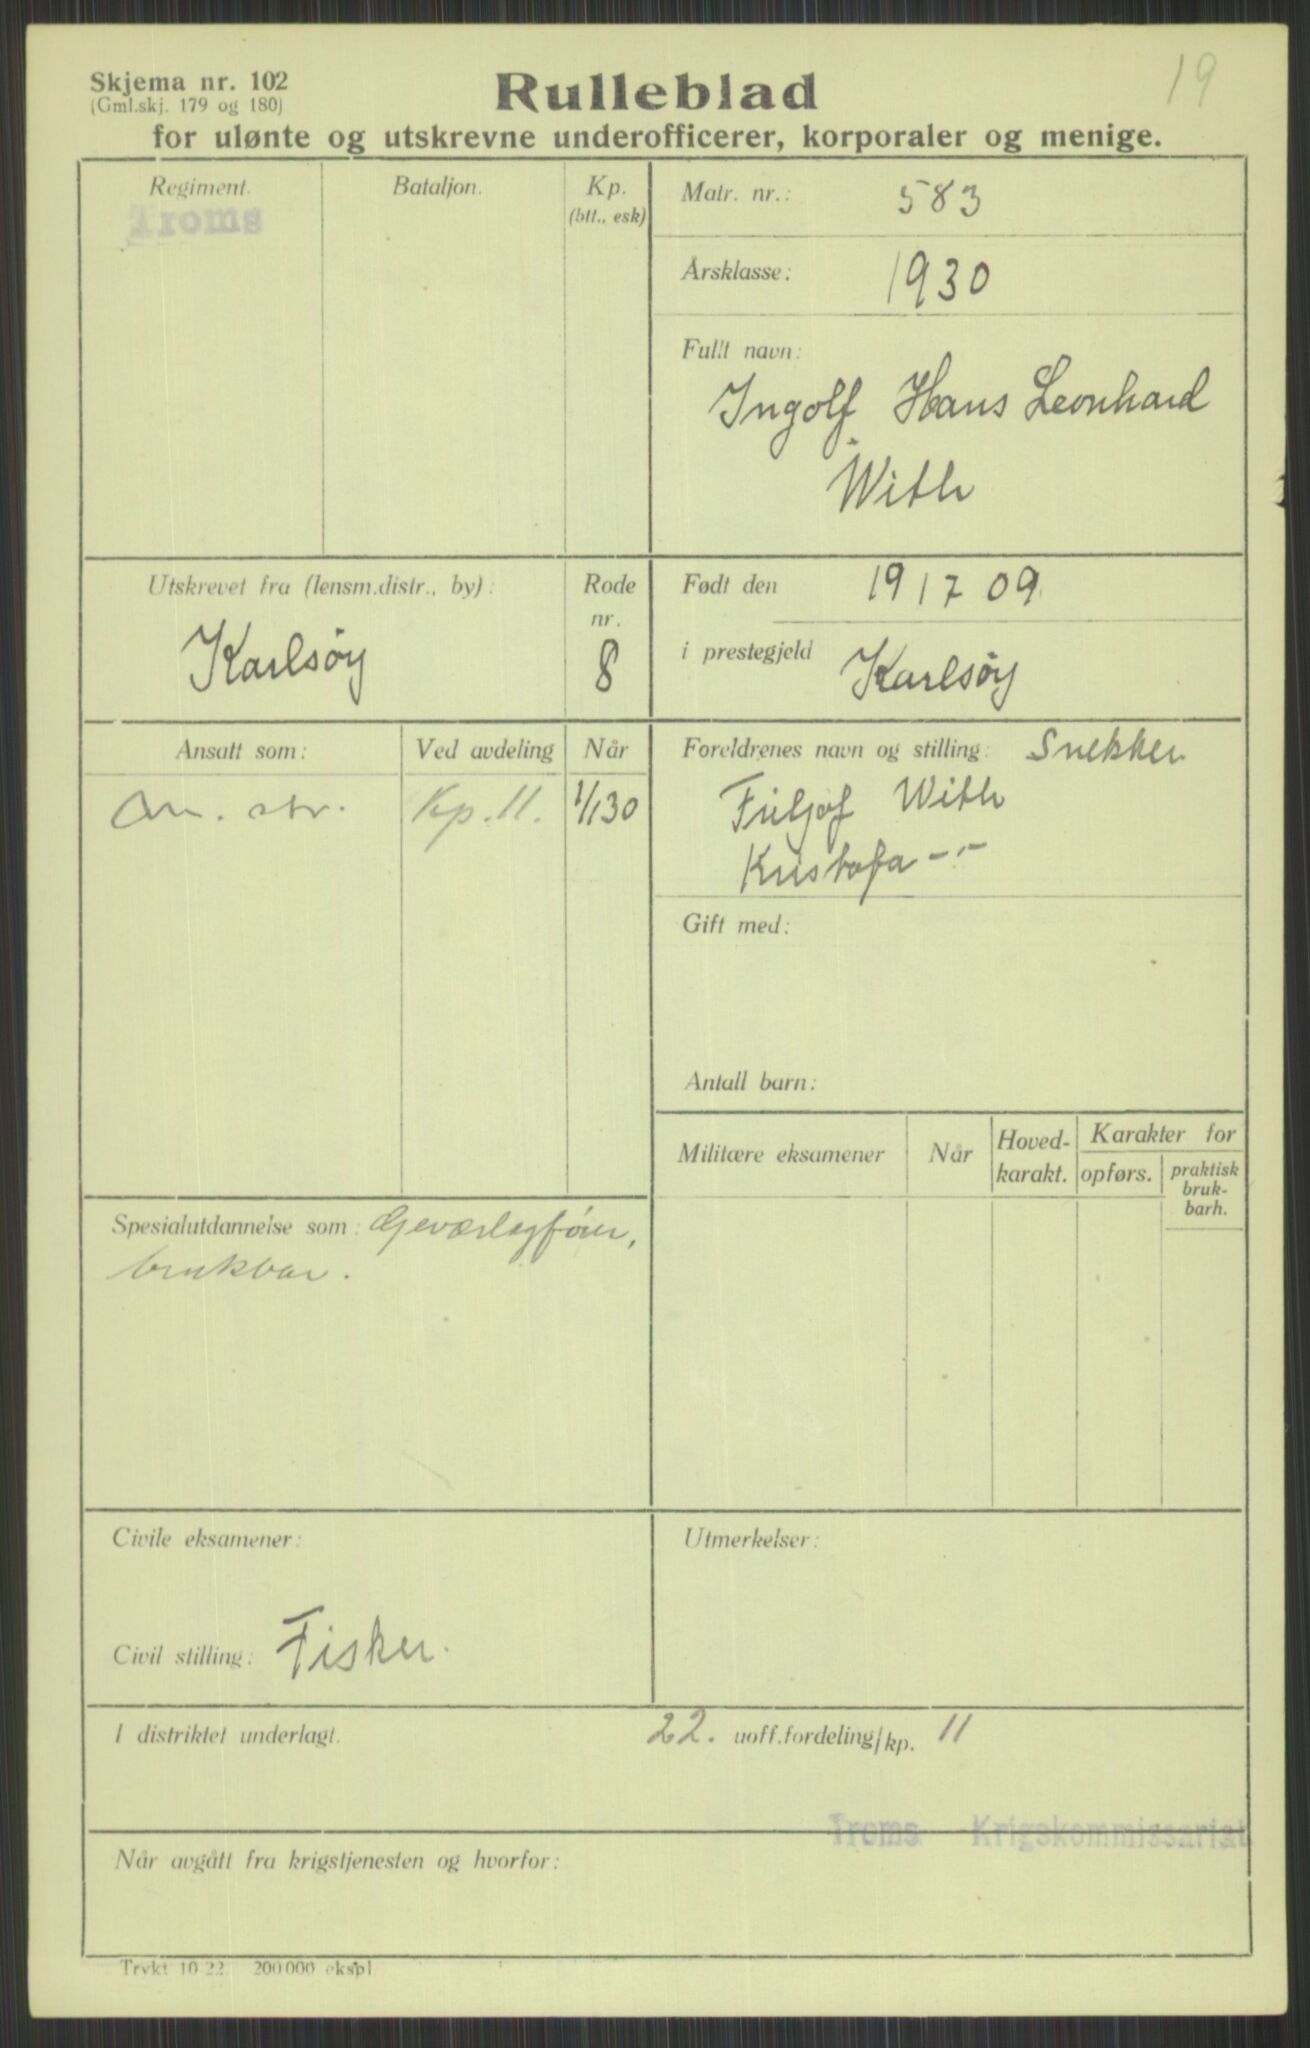 19
Skjema nr. 102
(Gml.skj. 179 og 180)
Rulleblad
for ulønte og utskrevne underofficerer, korporaler og menige.
Regiment. Bataljon. Kp.
(btt., esk)
Troms
Matr. nr.: 583
Årsklasse: 1930
Fullt navn:
Ingolf Hans Leonhard
With
Utskrevet fra (lensm.distr., by): Rode
nr.
Karlsöy 8
Født den 19 1 7 09
i prestegjeld Karlsöy
Ansatt som: Ved avdeling Når
An. str. Kp. 11. 1/1 30
Foreldrenes navn og stilling: Snekker
Fritjof With
Kristofa -"-
Gift med:
Antall barn:
Militære eksamener Når Hoved-
karakt. Karakter for
opførs. praktisk
bruk-
barh.
Spesialutdannelse som: Geværlagfører,
brukbar.
Civile eksamener:
Utmerkelser:
Civil stilling: Fisker.
I distriktet underlagt. 22. uoff.fordeling/kp. 11
Troms Krigskommissariat
Når avgått fra krigstjenesten og hvorfor:
Trykt 10 22. 200000 ekspl